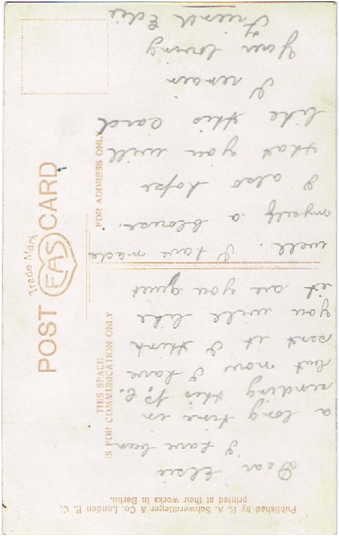 Dear Elsie
I have been
a long time in
sending this P. C.
but now I have
sent it I think
you will like
it are you quiet
well. I have made
myself a blouse.
I also hope
that you will
like this card
I remain
Your loving
Friend Edie
POST CARD
Trade Mark
EAS
THIS SPACE
IS FOR COMMUNICATION ONLY
FOR ADDRESS ONLY
Published by E. A. Schwerdtfeger & Co. London E. C.
printed at their works in Berlin.